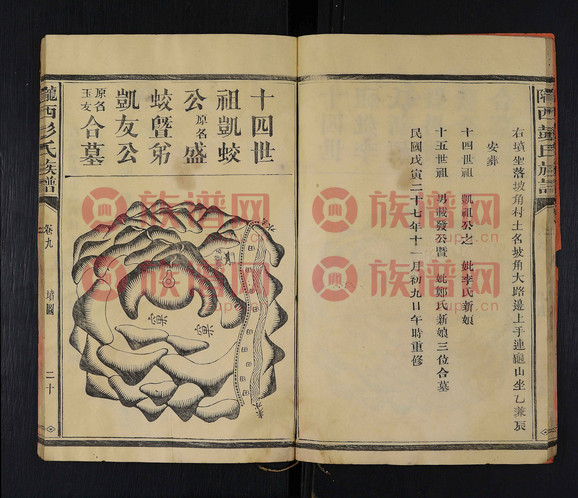 隴西彭氏族譜
右墳坐落坡角村土名坡角大路邊上手連龜山坐乙兼辰
安葬
十四世祖 凱祖公之 妣李氏新娘
十五世祖 男載發公暨 妣鄭氏新娘三位合墓
民國戊寅二十七年十一月初九日午時重修
十四世
祖凱蛟
公原名盛
蛟暨弟
凱友公
原名玉友合墓
隴西彭氏族譜
卷九
墳圖
二十
族譜网
族譜网
族譜网
族譜网